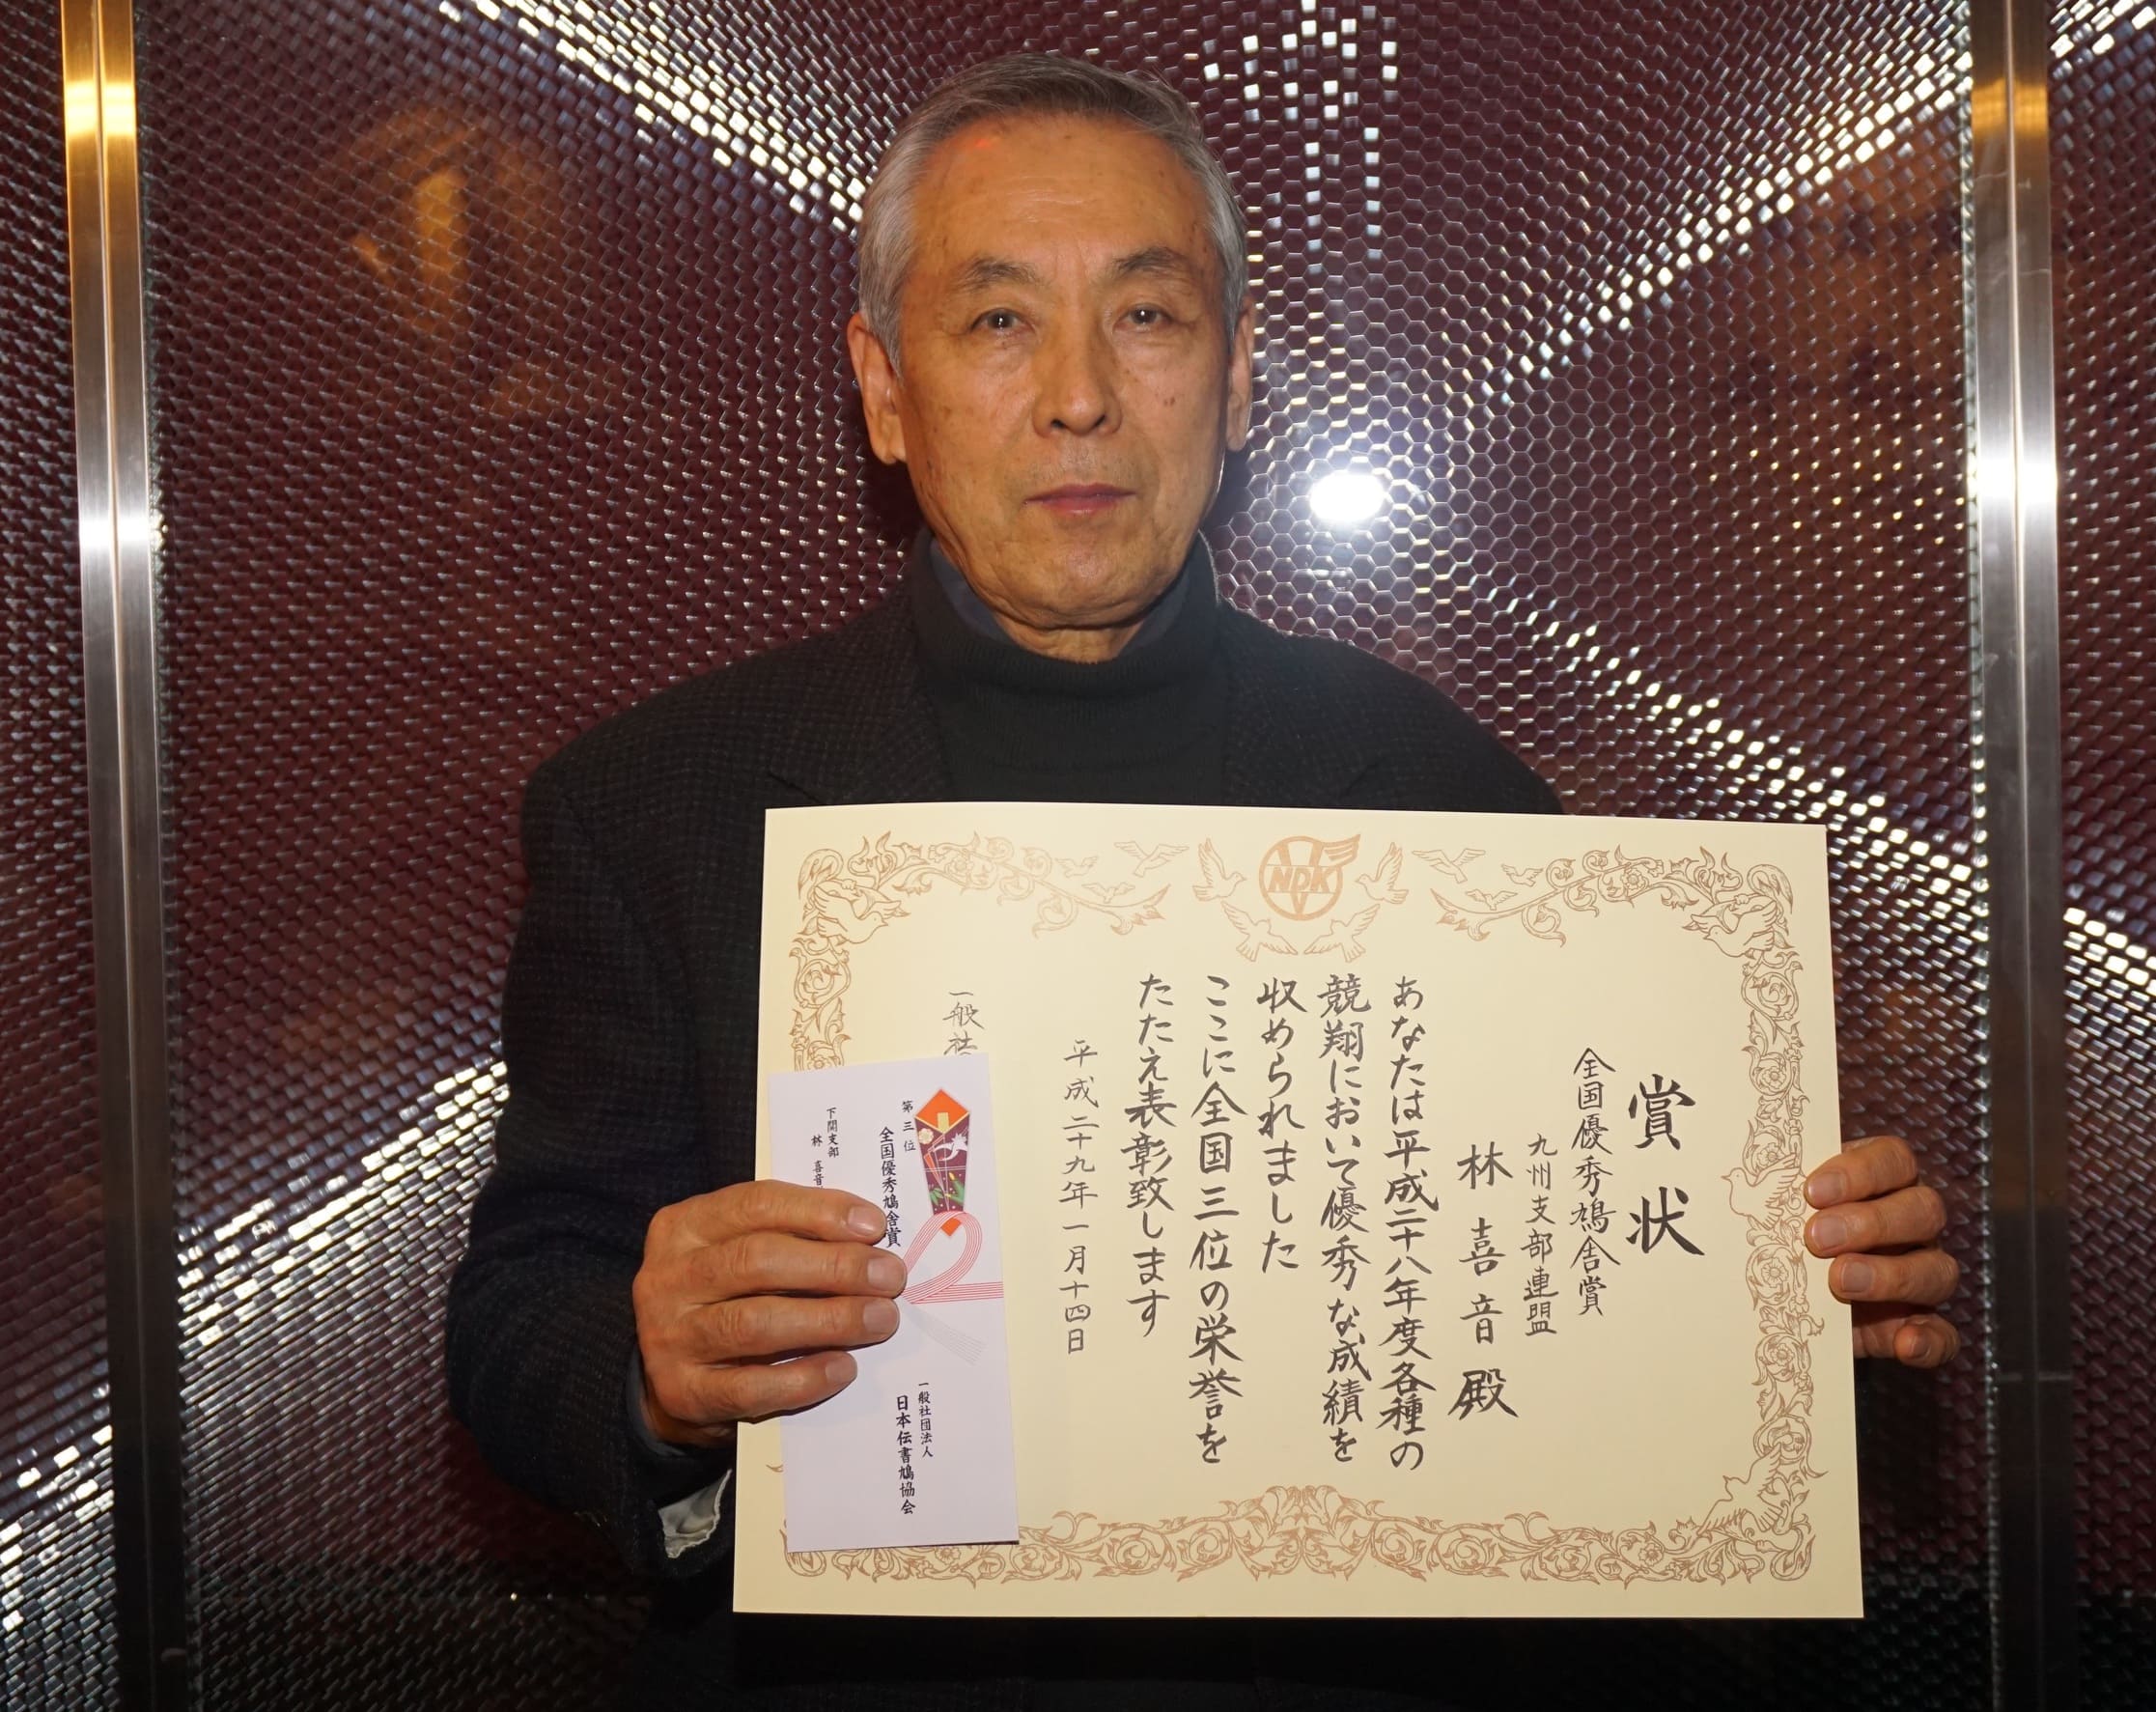 NDK
賞状
全国優秀鳩舎賞
九州支部連盟
林喜音殿
あなたは平成二十八年度各種の
競翔において優秀な成績を
収められました
ここに全国三位の栄誉を
たたえ表彰致します
平成二十九年一月十四日
一般社
第三位
全国優秀鳩舎賞
下関支部
林喜音
一般社団法人
日本伝書鳩協会